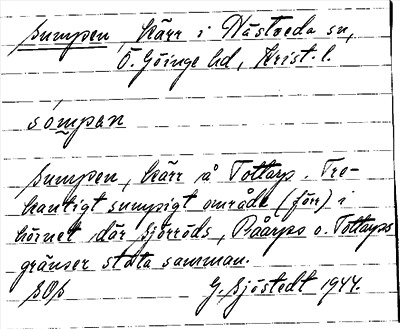 Sumpen, kärr i Nästveda sn,
Ö. Göinge hd, Krist. l.
sómpan
Sumpen, kärr å Tottarp. Tre-
kantigt sumpigt område (förr) i
hörnet där Sjörröds, Påarps o. Tottarps
gränser stöta samman.
G. Sjöstedt 1944.